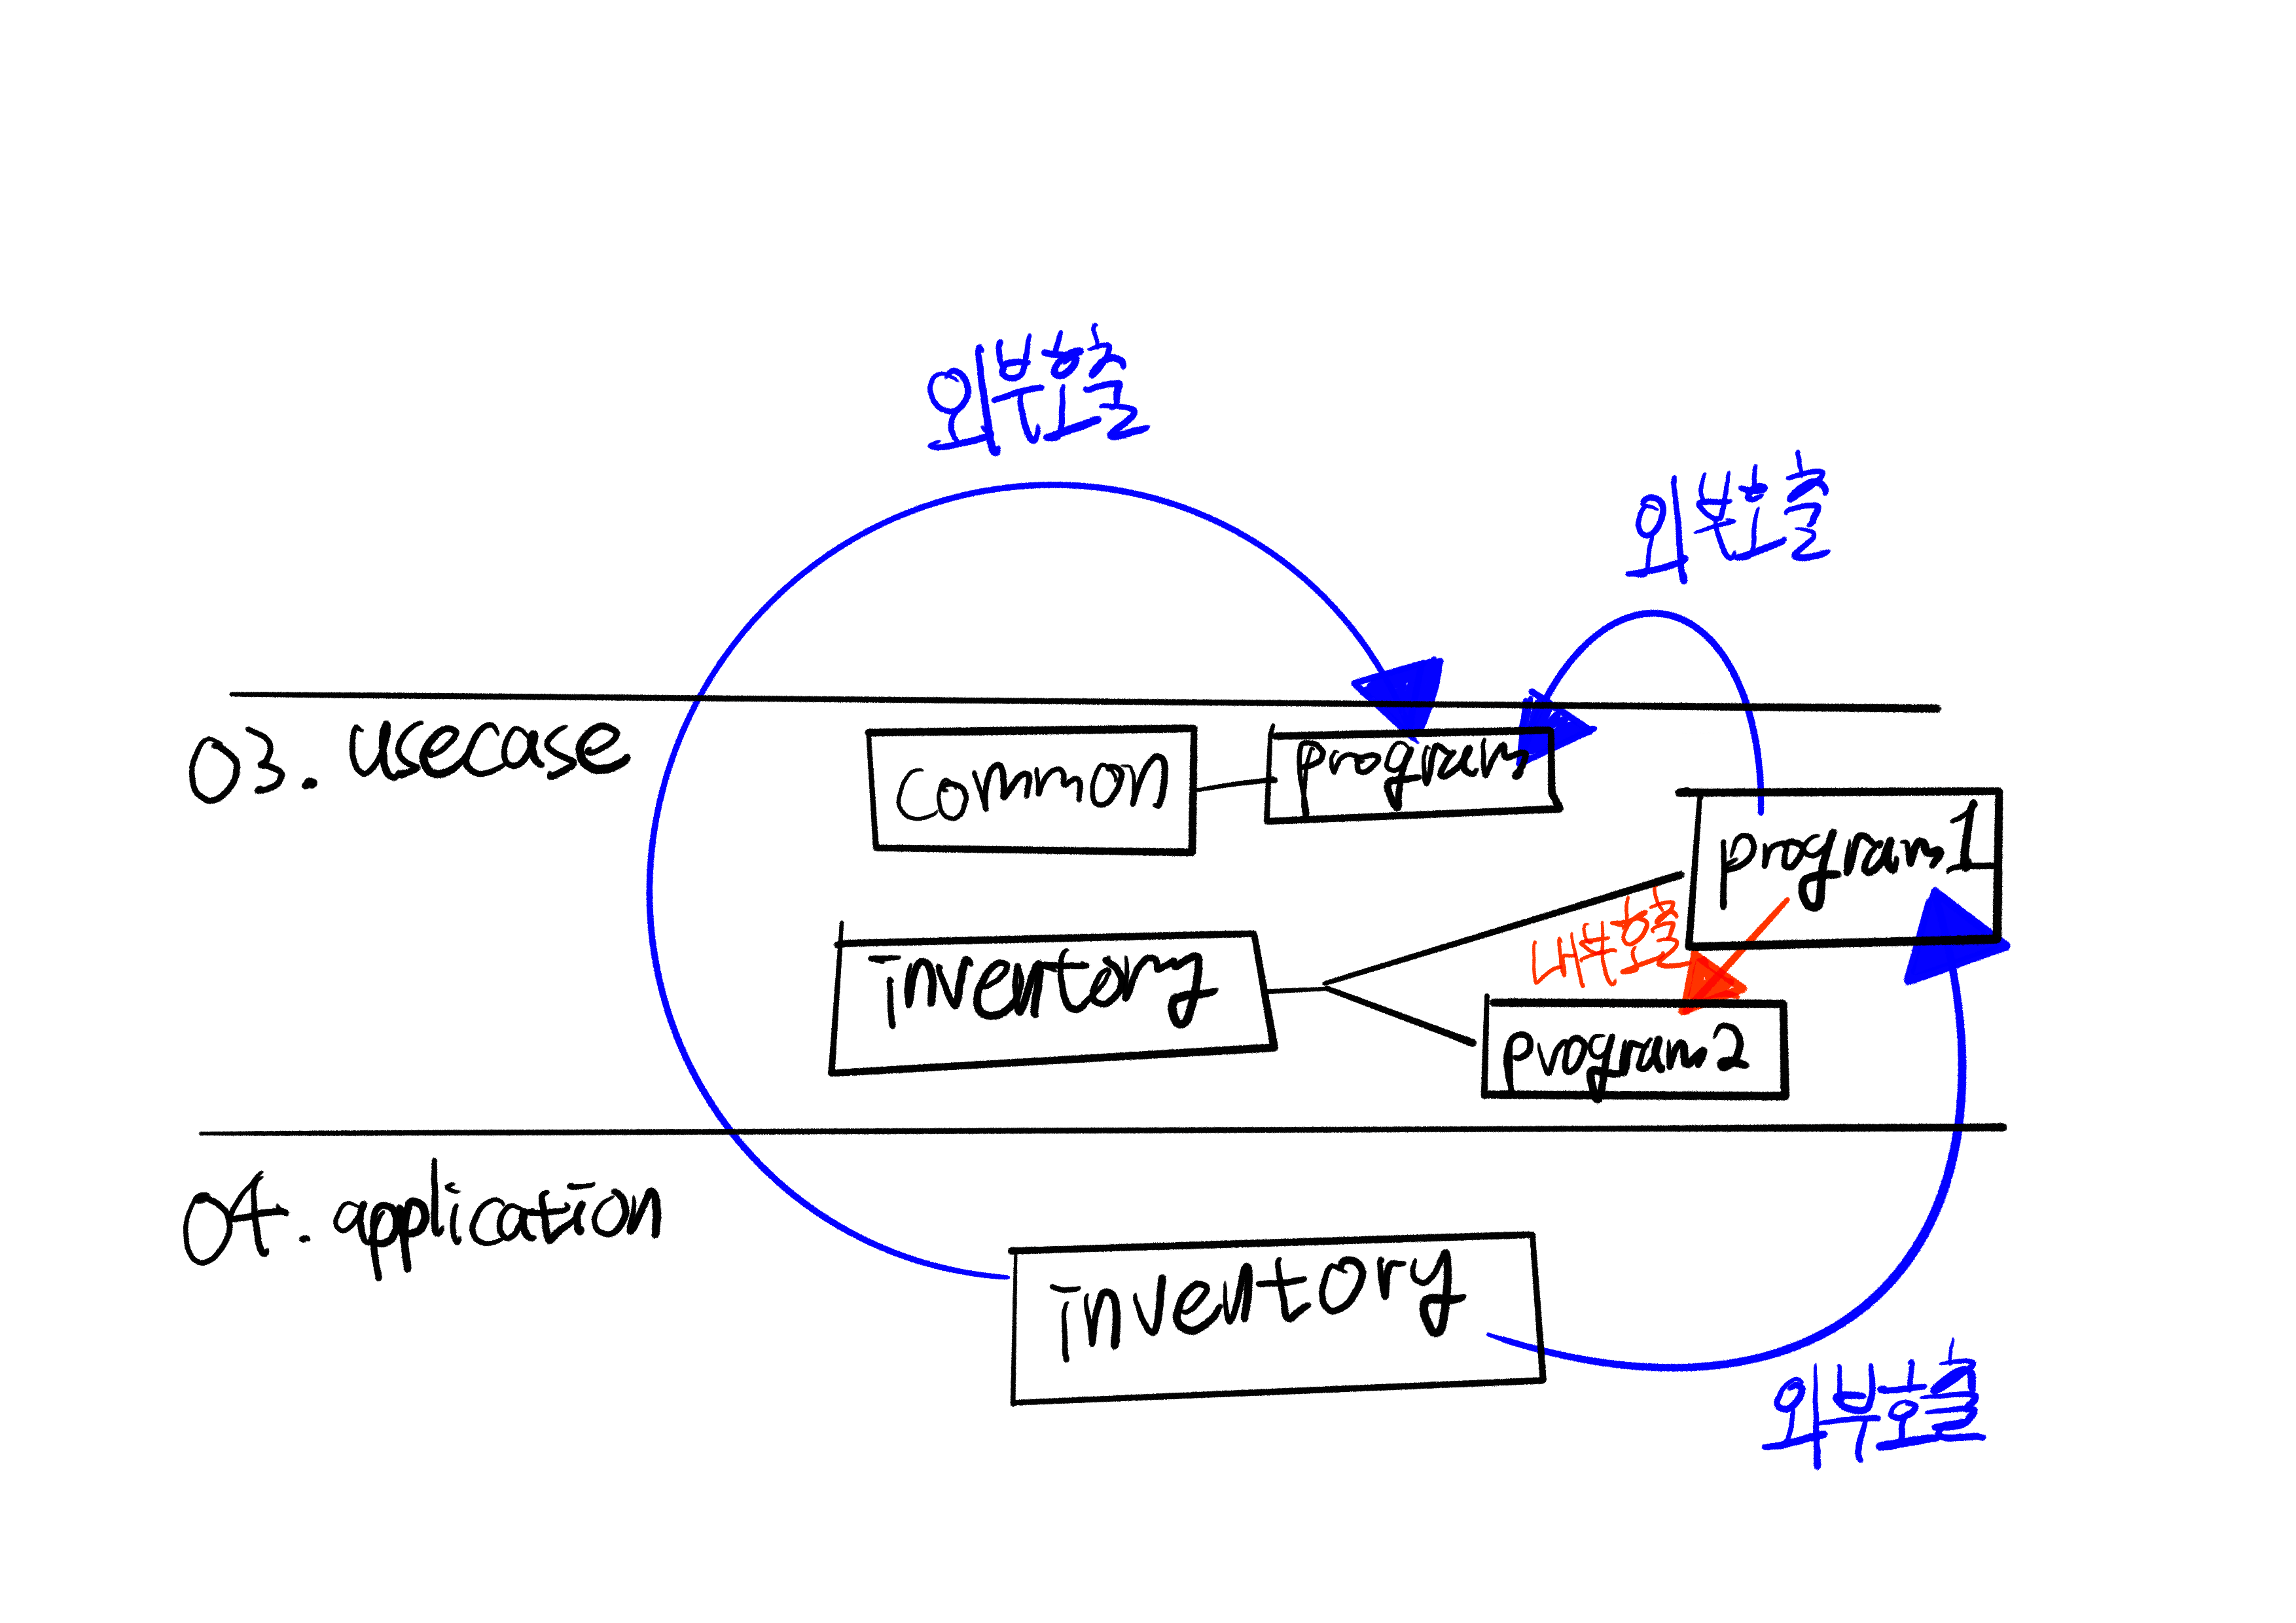 외부호출
외부호출
03. usecase
common
program
program1
내부호출
inventory
program2
04. application
inventory
외부호출